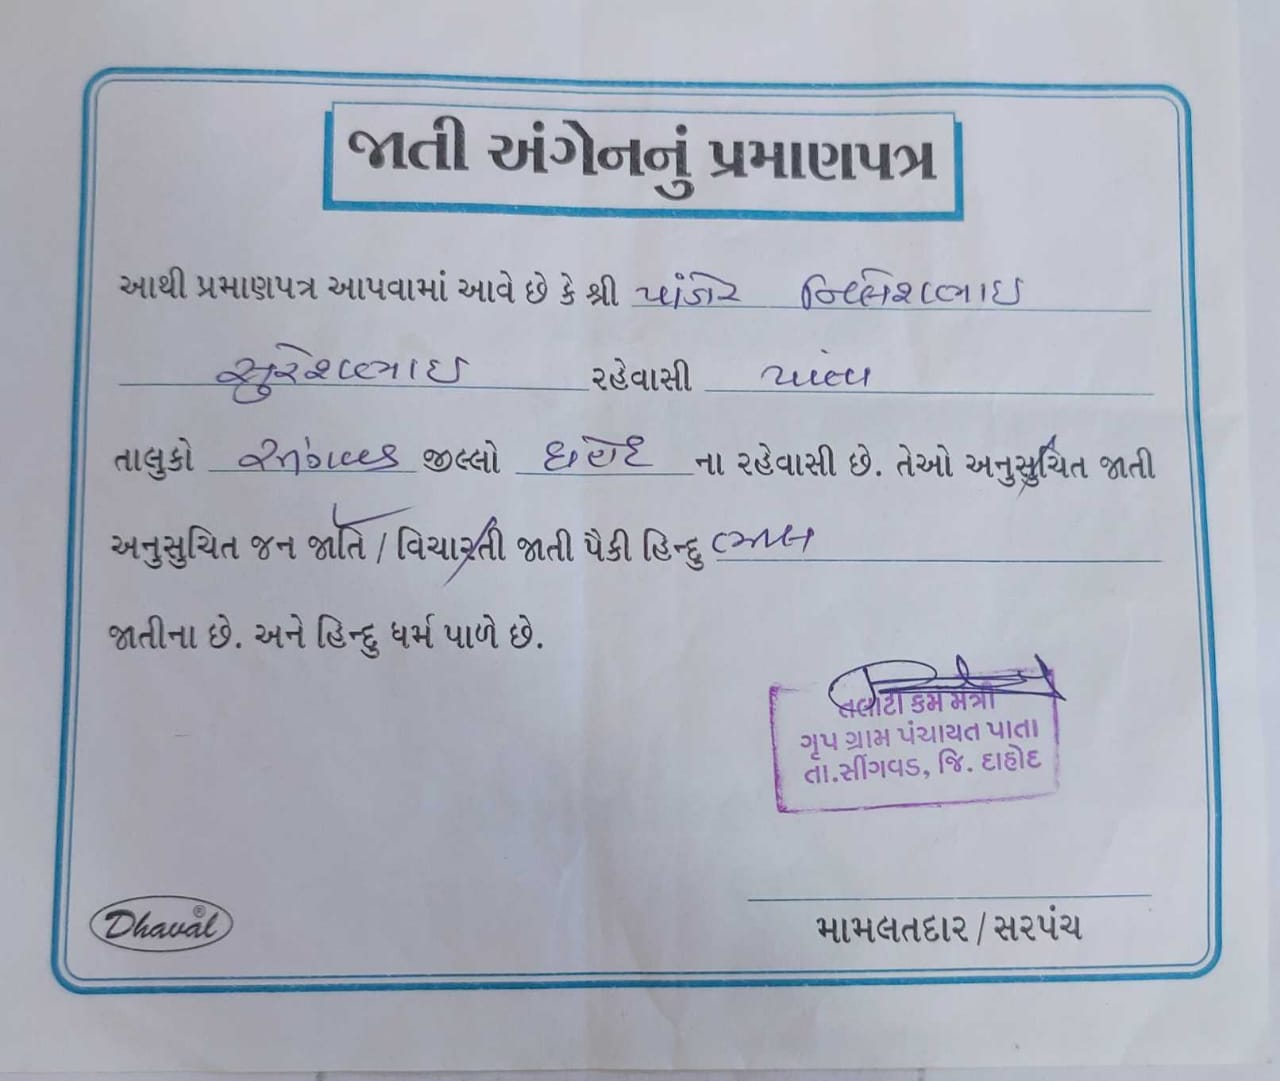 જાતી અંગેનનું પ્રમાણપત્ર
આથી પ્રમાણપત્ર આપવામાં આવે છે કે શ્રી નિલેશભાઇ
સુરેશભાઇ રહેવાસી
તાલુકો જીલ્લો દાહોદ ના રહેવાસી છે. તેઓ અનુસુચિત જાતી
અનુસુચિત જન જાતિ / વિચારતી જાતી પૈકી હિન્દુ ભીલ
જાતીના છે. અને હિન્દુ ધર્મ પાળે છે.
તલાટી કમ મંત્રી
ગૃપ ગ્રામ પંચાયત પાતા
તા.સીંગવડ, જિ. દાહોદ
Dhaval®
મામલતદાર / સરપંચ